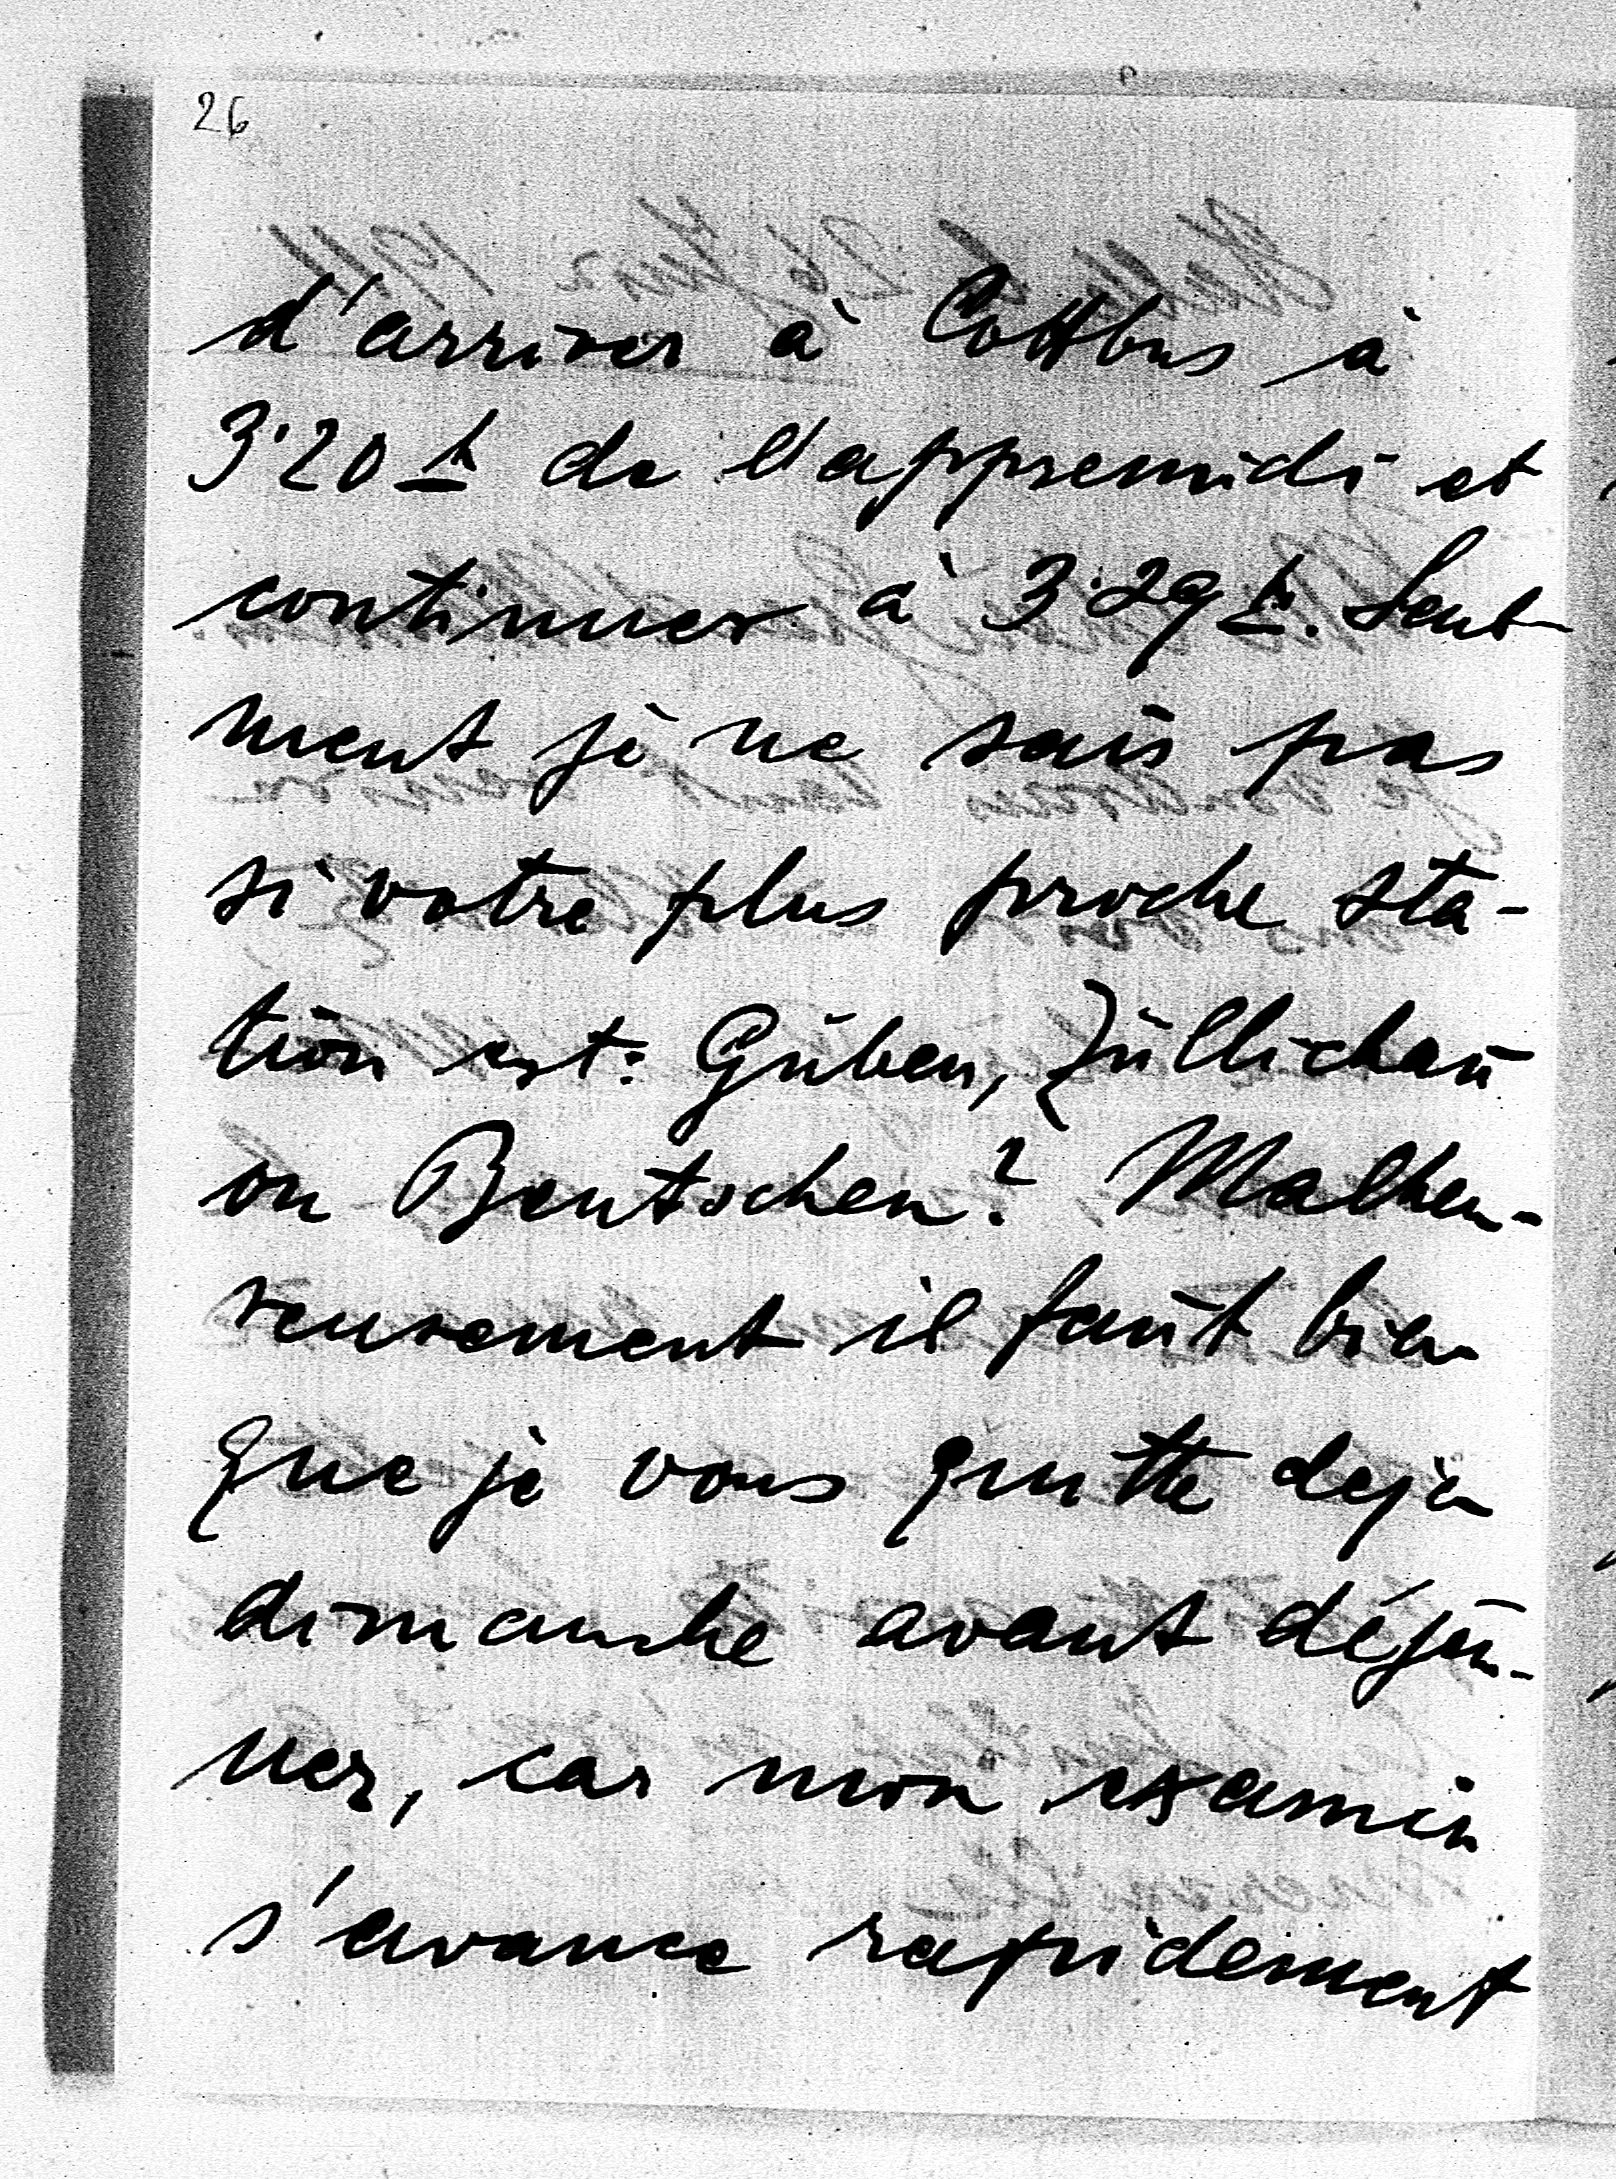 26
d'arriver à Cottbus à
3·20 h de l'appremidi et
continuer à 3·29 h. Seul-
ment je ne sais pas
si votre plus proche sta-
tion est: Gŭben, Züllichaŭ
ou Bentschen? Malheu-
reusement il faŭt bien
que je vous quitte deja
dimanche avant déjeŭ-
ner, car mon examin
s'avance rapidement